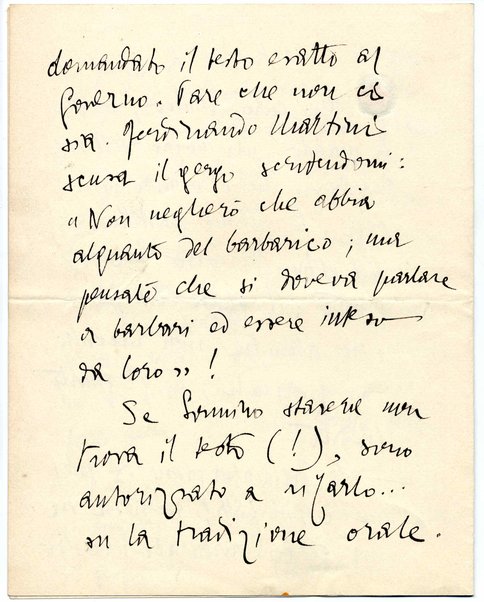 domandato il testo esatto al
Governo. Pare che non ci
sia. Ferdinando Martini
scusa il gergo scrivendomi:
"Non negherò che abbia
alquanto del barbarico; ma
pensate che si doveva parlare
a barbari ed essere inteso
da loro"!
Se Sonnino stasera non
trova il testo (!), sono
autorizzato a rifarlo...
su la tradizione orale.